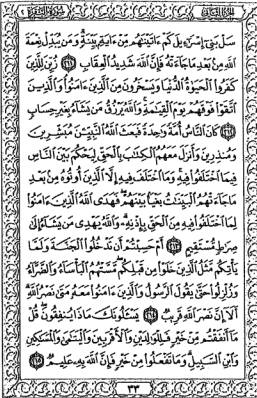 الجزء الثاني سورة البقرة
سَلْ بَنِىٓ إِسْرَٰٓءِيلَ كَمْ ءَاتَيْنَٰهُم مِّنْ ءَايَةٍۭ بَيِّنَةٍ وَمَن يُبَدِّلْ نِعْمَةَ
ٱللَّهِ مِنۢ بَعْدِ مَا جَآءَتْهُ فَإِنَّ ٱللَّهَ شَدِيدُ ٱلْعِقَابِ ﴿٢١١﴾ زُيِّنَ لِلَّذِينَ
كَفَرُوا۟ ٱلْحَيَوٰةُ ٱلدُّنْيَا وَيَسْخَرُونَ مِنَ ٱلَّذِينَ ءَامَنُوا۟ وَٱلَّذِينَ
ٱتَّقَوْا۟ فَوْقَهُمْ يَوْمَ ٱلْقِيَٰمَةِ وَٱللَّهُ يَرْزُقُ مَن يَشَآءُ بِغَيْرِ حِسَابٍ
﴿٢١٢﴾ كَانَ ٱلنَّاسُ أُمَّةً وَٰحِدَةً فَبَعَثَ ٱللَّهُ ٱلنَّبِيِّۦنَ مُبَشِّرِينَ
وَمُنذِرِينَ وَأَنزَلَ مَعَهُمُ ٱلْكِتَٰبَ بِٱلْحَقِّ لِيَحْكُمَ بَيْنَ ٱلنَّاسِ
فِيمَا ٱخْتَلَفُوا۟ فِيهِ وَمَا ٱخْتَلَفَ فِيهِ إِلَّا ٱلَّذِينَ أُوتُوهُ مِنۢ بَعْدِ
مَا جَآءَتْهُمُ ٱلْبَيِّنَٰتُ بَغْيًۢا بَيْنَهُمْ فَهَدَى ٱللَّهُ ٱلَّذِينَ ءَامَنُوا۟
لِمَا ٱخْتَلَفُوا۟ فِيهِ مِنَ ٱلْحَقِّ بِإِذْنِهِۦ وَٱللَّهُ يَهْدِى مَن يَشَآءُ إِلَىٰ
صِرَٰطٍ مُّسْتَقِيمٍ ﴿٢١٣﴾ أَمْ حَسِبْتُمْ أَن تَدْخُلُوا۟ ٱلْجَنَّةَ وَلَمَّا
يَأْتِكُم مَّثَلُ ٱلَّذِينَ خَلَوْا۟ مِن قَبْلِكُم مَّسَّتْهُمُ ٱلْبَأْسَآءُ وَٱلضَّرَّآءُ
وَزُلْزِلُوا۟ حَتَّىٰ يَقُولَ ٱلرَّسُولُ وَٱلَّذِينَ ءَامَنُوا۟ مَعَهُۥ مَتَىٰ نَصْرُ ٱللَّهِ
أَلَآ إِنَّ نَصْرَ ٱللَّهِ قَرِيبٌ ﴿٢١٤﴾ يَسْـَٔلُونَكَ مَاذَا يُنفِقُونَ قُلْ
مَآ أَنفَقْتُم مِّنْ خَيْرٍ فَلِلْوَٰلِدَيْنِ وَٱلْأَقْرَبِينَ وَٱلْيَتَٰمَىٰ وَٱلْمَسَٰكِينِ
وَٱبْنِ ٱلسَّبِيلِ وَمَا تَفْعَلُوا۟ مِنْ خَيْرٍ فَإِنَّ ٱللَّهَ بِهِۦ عَلِيمٌ ﴿٢١٥﴾
٣٣